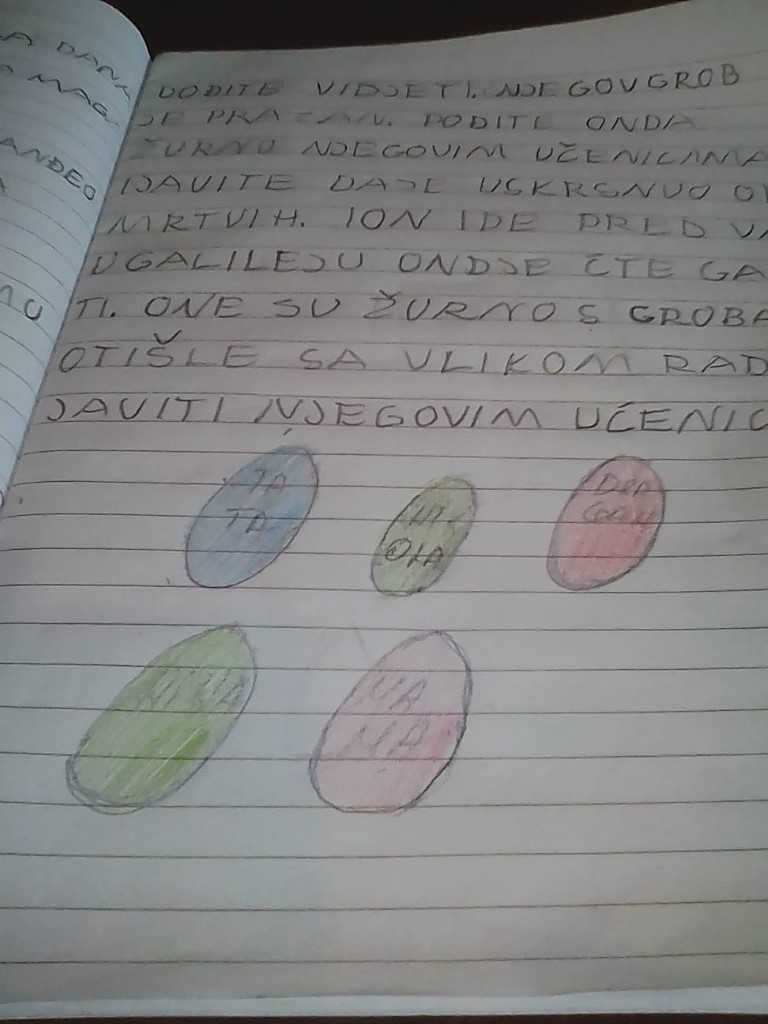 A DANA
MAG
ANĐEO
DOĐITE VIDJETI. NJEGOV GROB
JE PRAZAN. POĐITE ONDA
ŽURNO NJEGOVIM UČENICIMA
IJAVITE DAJE USKRSNUO O
MRTVIH. ION IDE PRED VA
UGALILEJU ONDJE ĆTE GA
TI. ONE SU ŽURNO S GROBA
OTIŠLE SA VLIKOM RAD
JAVITI NJEGOVIM UČENIC
TA
TA
NIK
OLA
DRA
GAN
NINA
MA
MA